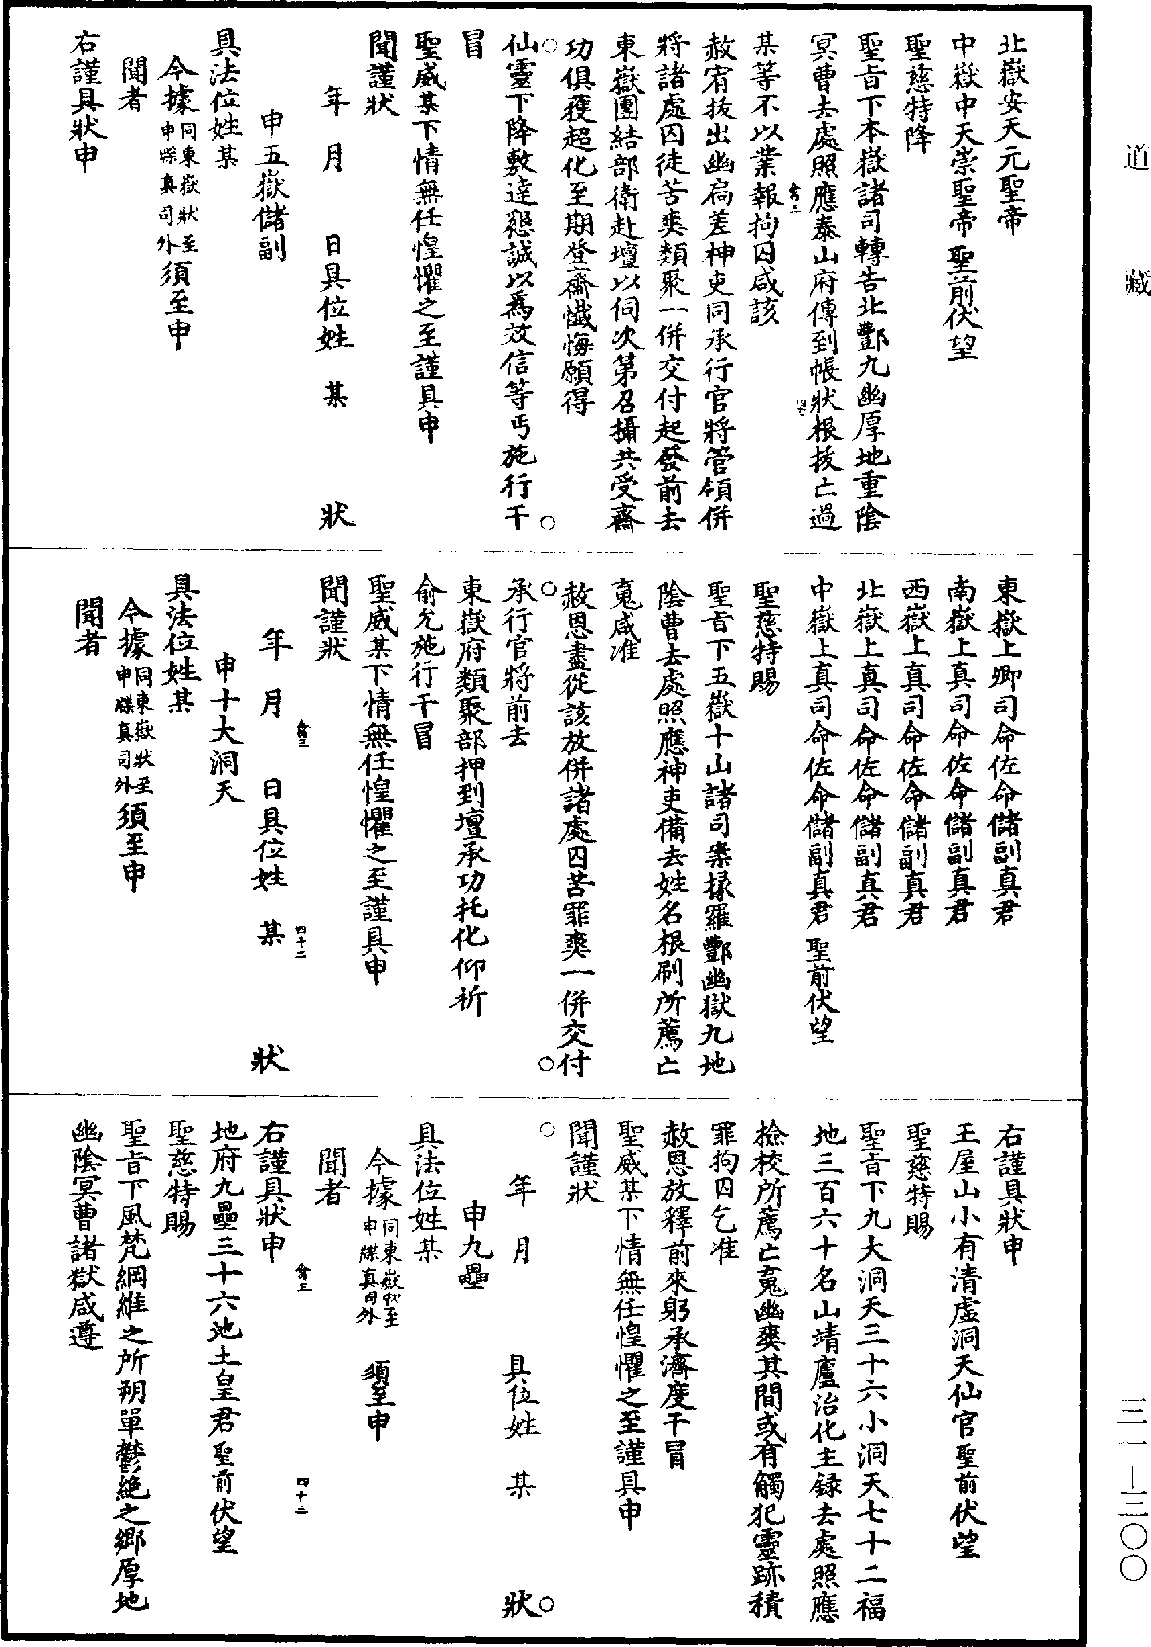 道藏
三一—三〇〇
北嶽安天元聖帝
中嶽中天崇聖帝聖前伏望
聖慈特降
聖旨下本嶽諸司轉告北酆九幽厚地重陰
冥曹去處照應泰山府傳到帳狀根拔亡過
某等不以業報拘囚咸該
赦宥拔出幽扃差神吏同承行官將管領併
將諸處囚徒苦爽類聚一併交付起發前去
東嶽團結部衛赴壇以伺次第召攝共受齋
功俱獲超化至期登齋懺悔願得
仙靈下降敷達懇誠以為效信等丐施行干
冒
聖威某下情無任惶懼之至謹具申
聞謹狀
年月日具位姓某狀
申五嶽儲副
具法位姓某
今據同東嶽狀至申牒真司外須至申
聞者
右謹具狀申
東嶽上卿司命佐命儲副真君
南嶽上真司命佐命儲副真君
西嶽上真司命佐命儲副真君
北嶽上真司命佐命儲副真君
中嶽上真司命佐命儲副真君聖前伏望
聖慈特賜
聖旨下五嶽十山諸司案掾羅酆幽獄九地
陰曹去處照應神吏備去姓名根刷所薦亡
䰟咸准
赦恩盡從該放併諸處囚苦罪爽一併交付
承行官將前去
東嶽府類聚部押到壇承功托化仰祈
俞允施行干冒
聖威某下情無任惶懼之至謹具申
聞謹狀
年月日具位姓某狀
申十大洞天
具法位姓某
今據同東嶽狀至申牒真司外須至申
聞者
右謹具狀申
王屋山小有清虛洞天仙官聖前伏望
聖慈特賜
聖旨下九大洞天三十六小洞天七十二福
地三百六十名山靖廬治化主録去處照應
撿校所薦亡䰟幽爽其間或有觸犯靈跡積
罪拘囚乞准
赦恩放釋前來躬承濟度干冒
聖威某下情無任惶懼之至謹具申
聞謹狀
年月具位姓某狀
申九壘
具法位姓某
今據同東嶽狀至申牒真司外須至申
聞者
右謹具狀申
地府九壘三十六池土皇君聖前伏望
聖慈特賜
聖旨下風梵綱維之所朔單鬱絕之鄉厚地
幽陰冥曹諸獄咸遵